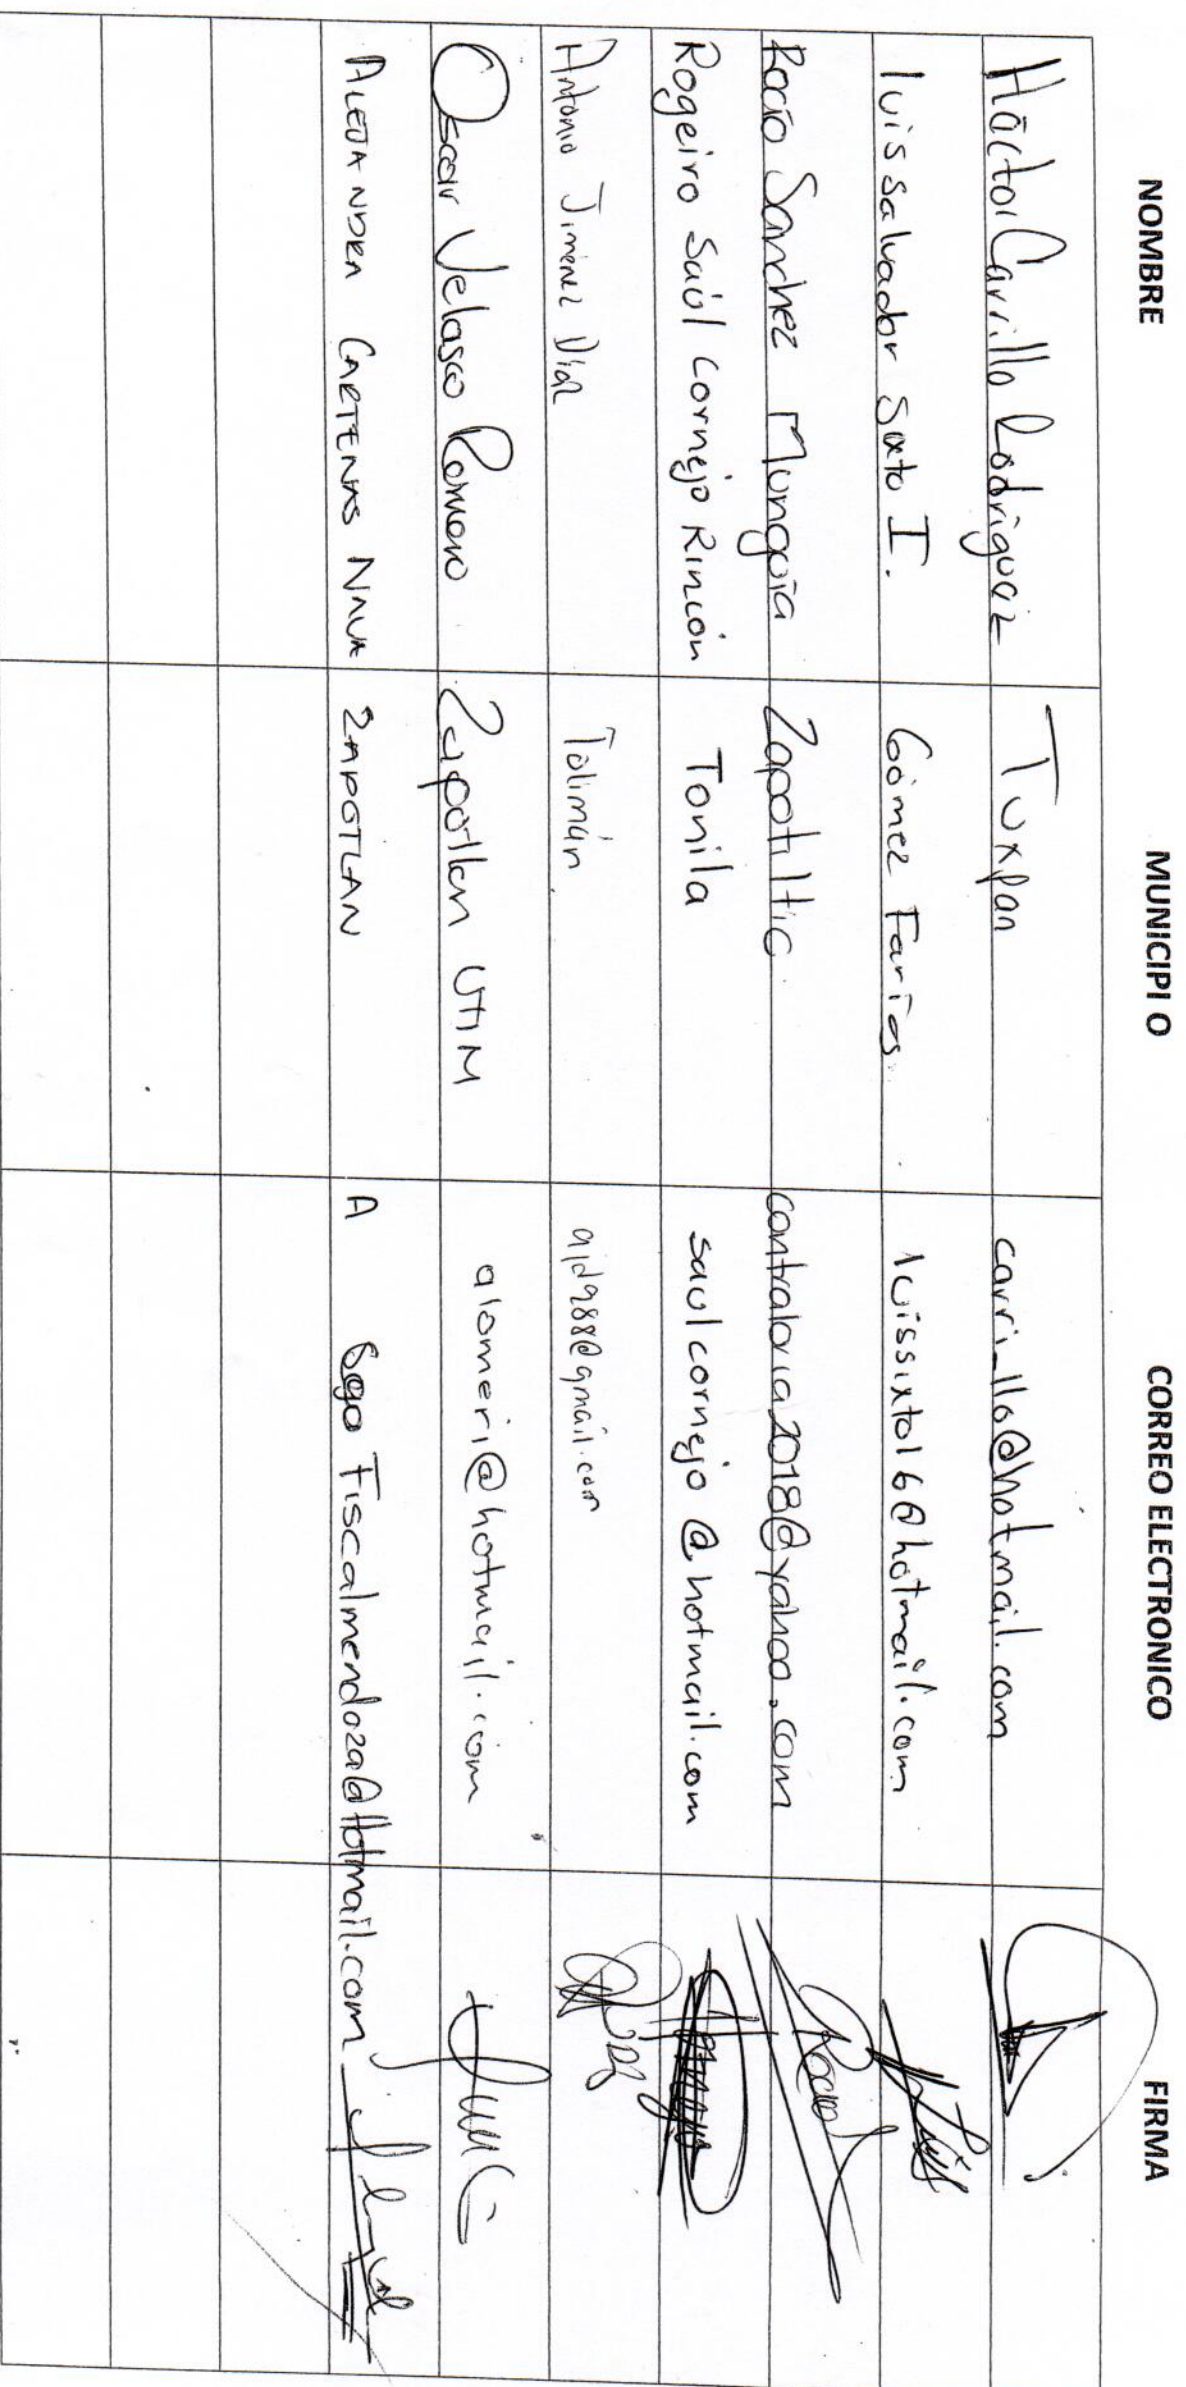 NOMBRE MUNICIPI O CORREO ELECTRONICO FIRMA
Häctor Carrillo Rodríguez Tuxpan carri_llo@hotmail.com
luis salvador Sixto I. Gómez Farías luissixto16@hotmail.com
Rocío Sánchez Munguía Zapotiltic contraloria2018@yahoo.com Rocío
Rogeiro Saúl Cornejo Rincón Tonila saulcornejo@hotmail.com
Antonio Jiménez Díaz Tolimán ajd988@gmail.com
Oscar Velasco Romero Zapotlan UTIM alomeri@hotmail.com
ALEJANDRA CARTENAS NAVA ZAPOTLAN A Fiscalmendoza@Hotmail.com